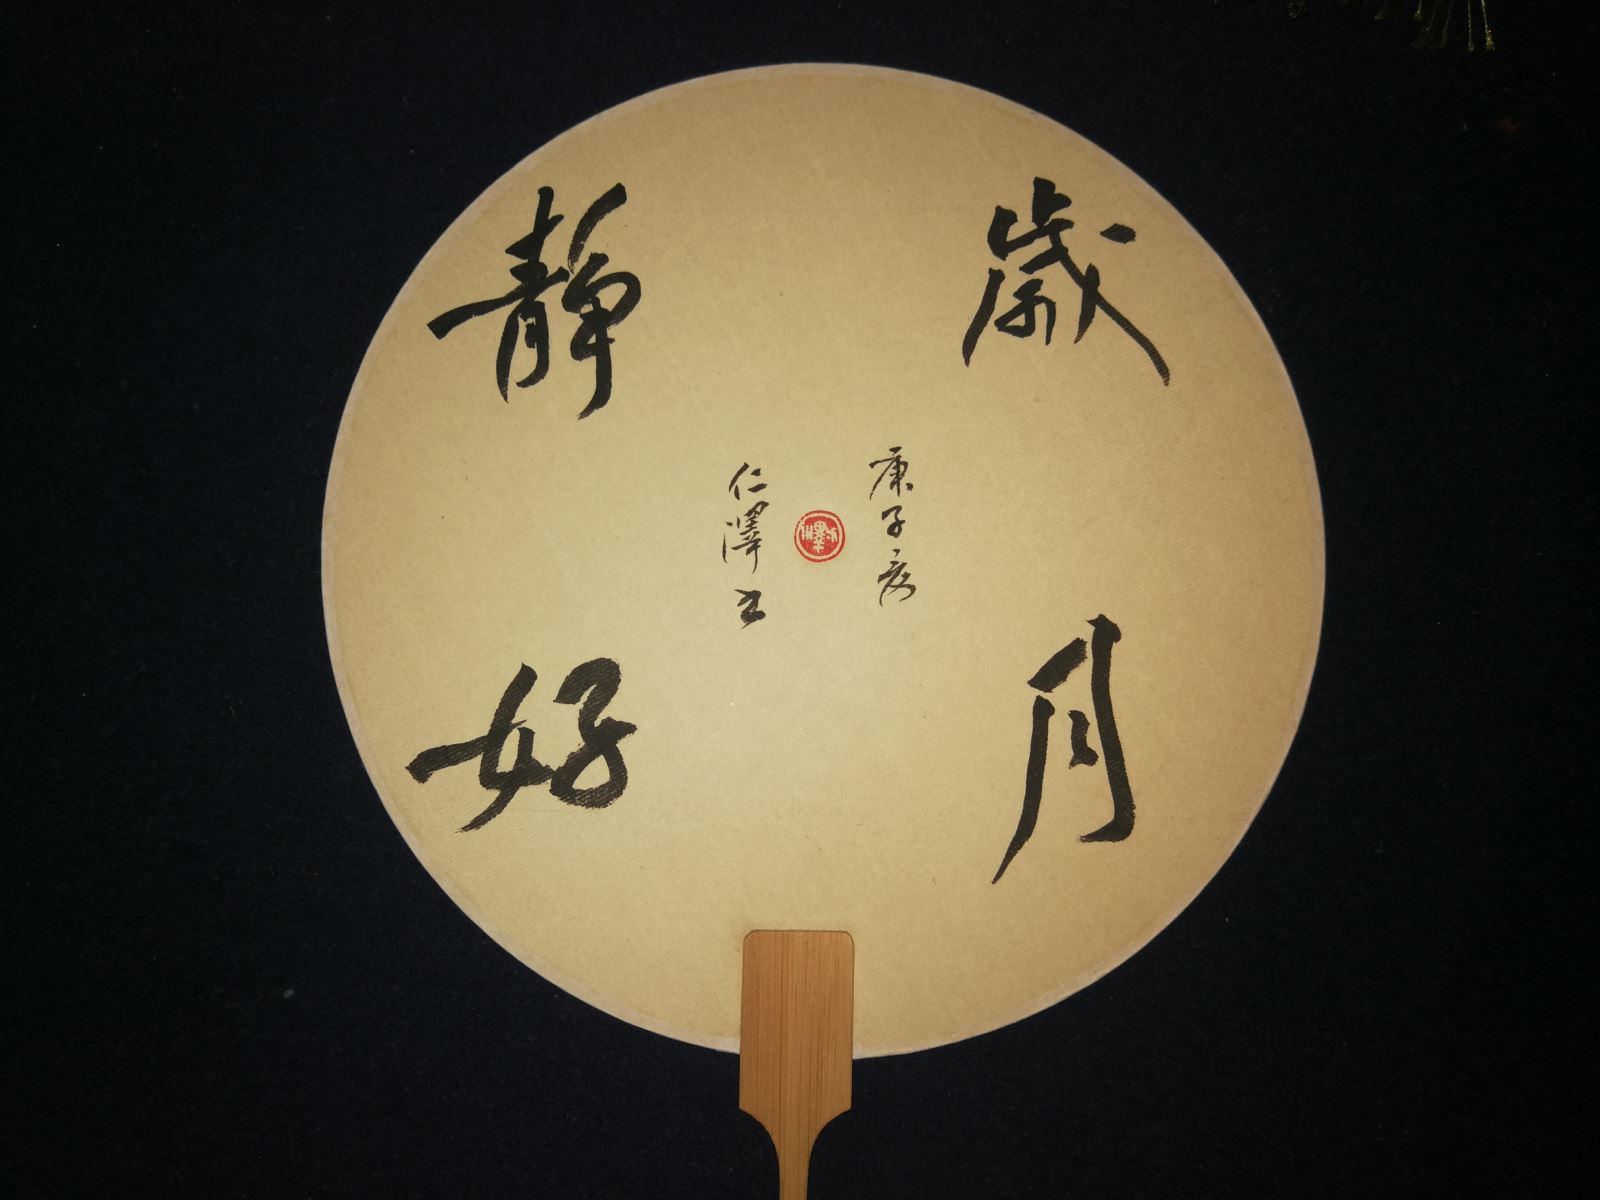 歲月
靜好
庚子夏
仁澤书